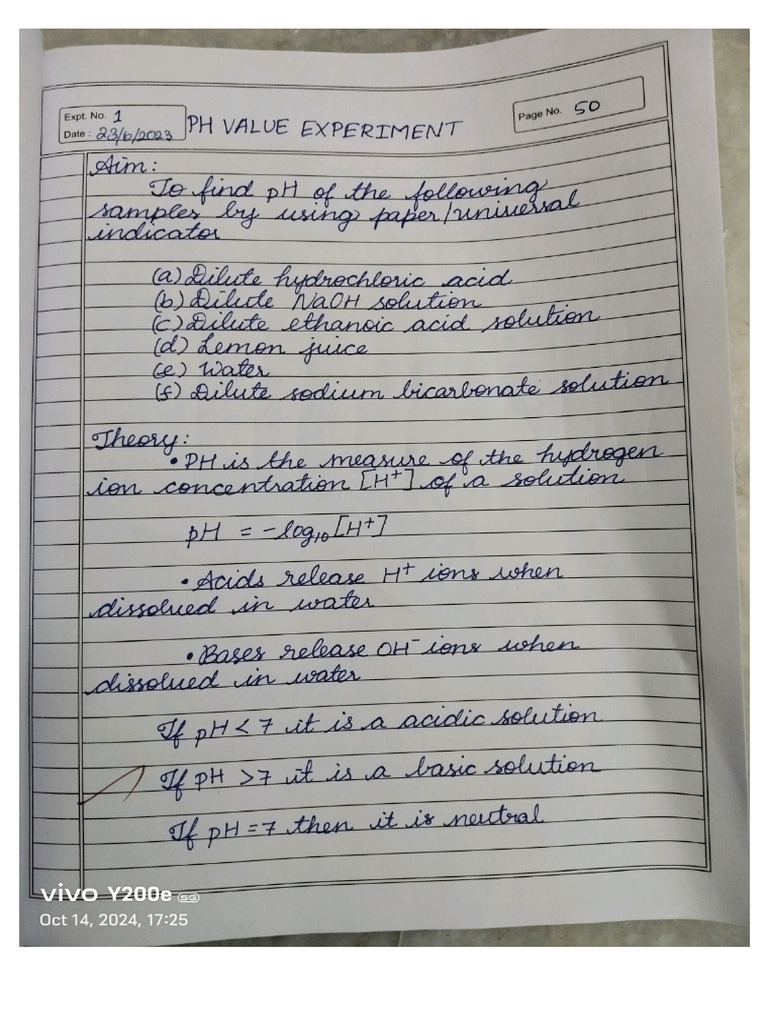 Expt. No. 1
Date : 23/6/2023
PH VALUE EXPERIMENT
Page No. 50
Aim:
To find pH of the following
samples by using paper/universal
indicator
(a) Dilute hydrochloric acid
(b) Dilute NaOH solution
(c) Dilute ethanoic acid solution
(d) Lemon juice
(e) Water
(f) Dilute sodium bicarbonate solution
Theory:
• PH is the measure of the hydrogen
ion concentration [H⁺] of a solution
pH = -log₁₀[H⁺]
• Acids release H⁺ ions when
dissolved in water
• Bases release OH⁻ ions when
dissolved in water
If pH < 7 it is a acidic solution
If pH >7 it is a basic solution
If pH = 7 then it is neutral
vivo Y200e 5G
Oct 14, 2024, 17:25